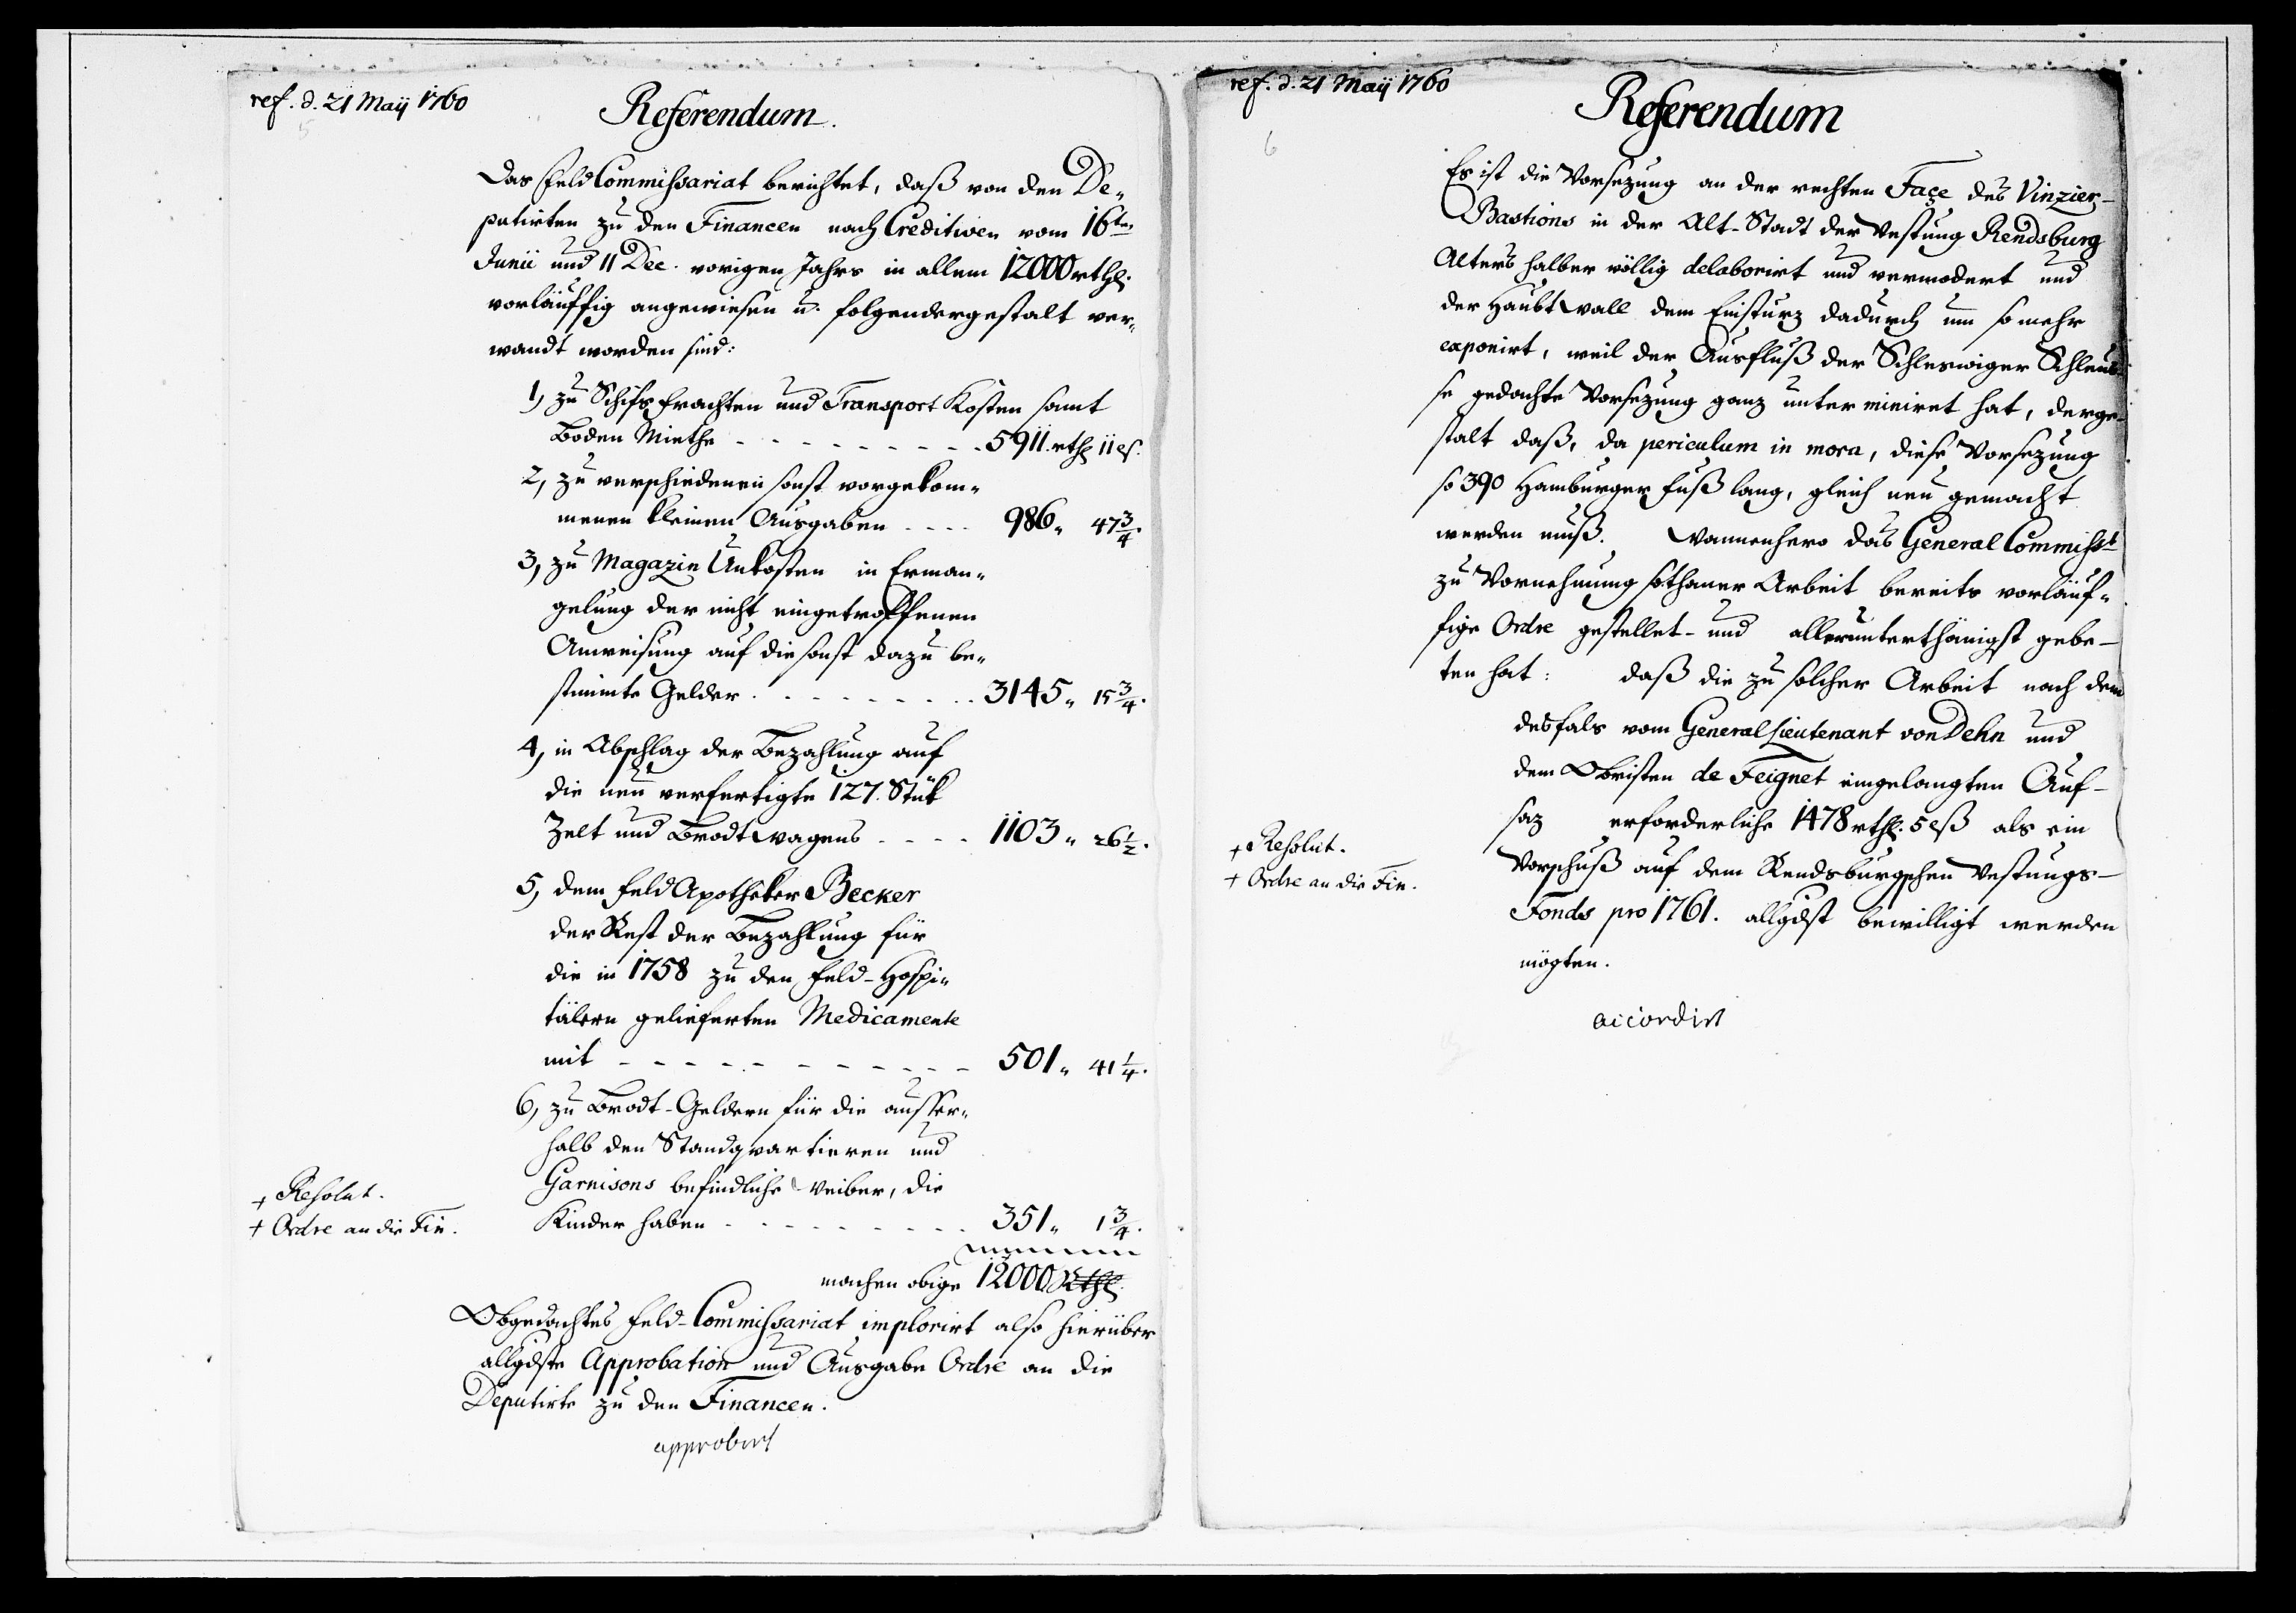 ref. d. 21 Maÿ 1760
5
Referendum.
Das Feld Commissariat berichtet, daß von den De„
putirten zu den Financen nach Creditiven vom 16ten
Junii und 11 Dec. vorigen Jahrs in allem 12000 rthl.
vorläuffig angewiesen u. folgendergestalt ver„
wandt worden sind:
1, zu Schifs frachten und Transport Kosten samt
Boden Miethe - - - - - - - - - 5911. rthl 11 ß.
2, zu verschiedenen sonst vorgekom„
menen kleinen Ausgaben - - - - 986„ 47 3/4.
3, zu Magazin Unkosten in Erman„
gelung der nicht eingetroffenen
Anweisung auf die sonst dazu be„
stimmte Gelder - - - - - - - - 3145„ 15 3/4.
4, in Abschlag der Bezahlung auf
die neu verfertigte 127. Stük
Zelt und Brodt Wagens - - - - 1103„ 26 1/2.
5, dem Feld Apotheker Becker
der Rest der Bezahlung für
die in 1758 zu den Feld-Hospi„
tälern gelieferten Medicamente
mit - - - - - - - - - - - 501„ 41 1/4.
6, zu Brodt-Geldern für die ausser„
halb den Standqvartieren und
Garnisons befindliche Weiber, die
Kinder haben - - - - - - - - - 351„ 1 3/4.
machen obige 12000 Rthl.
Obgedachtes Feld-Commissariat implorirt also hierüber
allgdste Approbation und Ausgabe Ordre an die
Deputirte zu den Financen.
approbirt
+ Resolut.
+ Ordre an die Fin.
ref. d. 21 Maÿ 1760
6
Referendum
Es ist die Vorsezung an der rechten Façe des Vinzier-
Bastions in der Alt-Stadt der Vestung Rendsburg
Alters halber völlig delaborirt und vermodert und
der Haubt Wall dem Einsturz dadurch um so mehr
exponirt, weil der Ausfluß der Schleswiger Schleus-
se gedachte Vorsezung ganz unter miniret hat, derge-
stalt daß, da periculum in mora, diese Vorsezung
so 390 Hamburger Fuß lang, gleich neu gemacht
werden muß. Wannenhero das General Commisst
zu Vornehmung sothaner Arbeit bereits vorläuf„
fige Ordre gestellet- und allerunterthänigst gebe-
ten hat: daß die zu solcher Arbeit nach dem
desfals vom General Lieutenant von Dehn und
dem Obristen de Feignet eingelangten Auf-
saz erforderliche 1478 rthl. 5 ß als ein
Vorschuß auf dem Rendsburgschen Vestungs-
Fonds pro 1761. allgdst bewilligt werden
mögten.
accordirt
+ Resolut.
+ Ordre an die Fin.